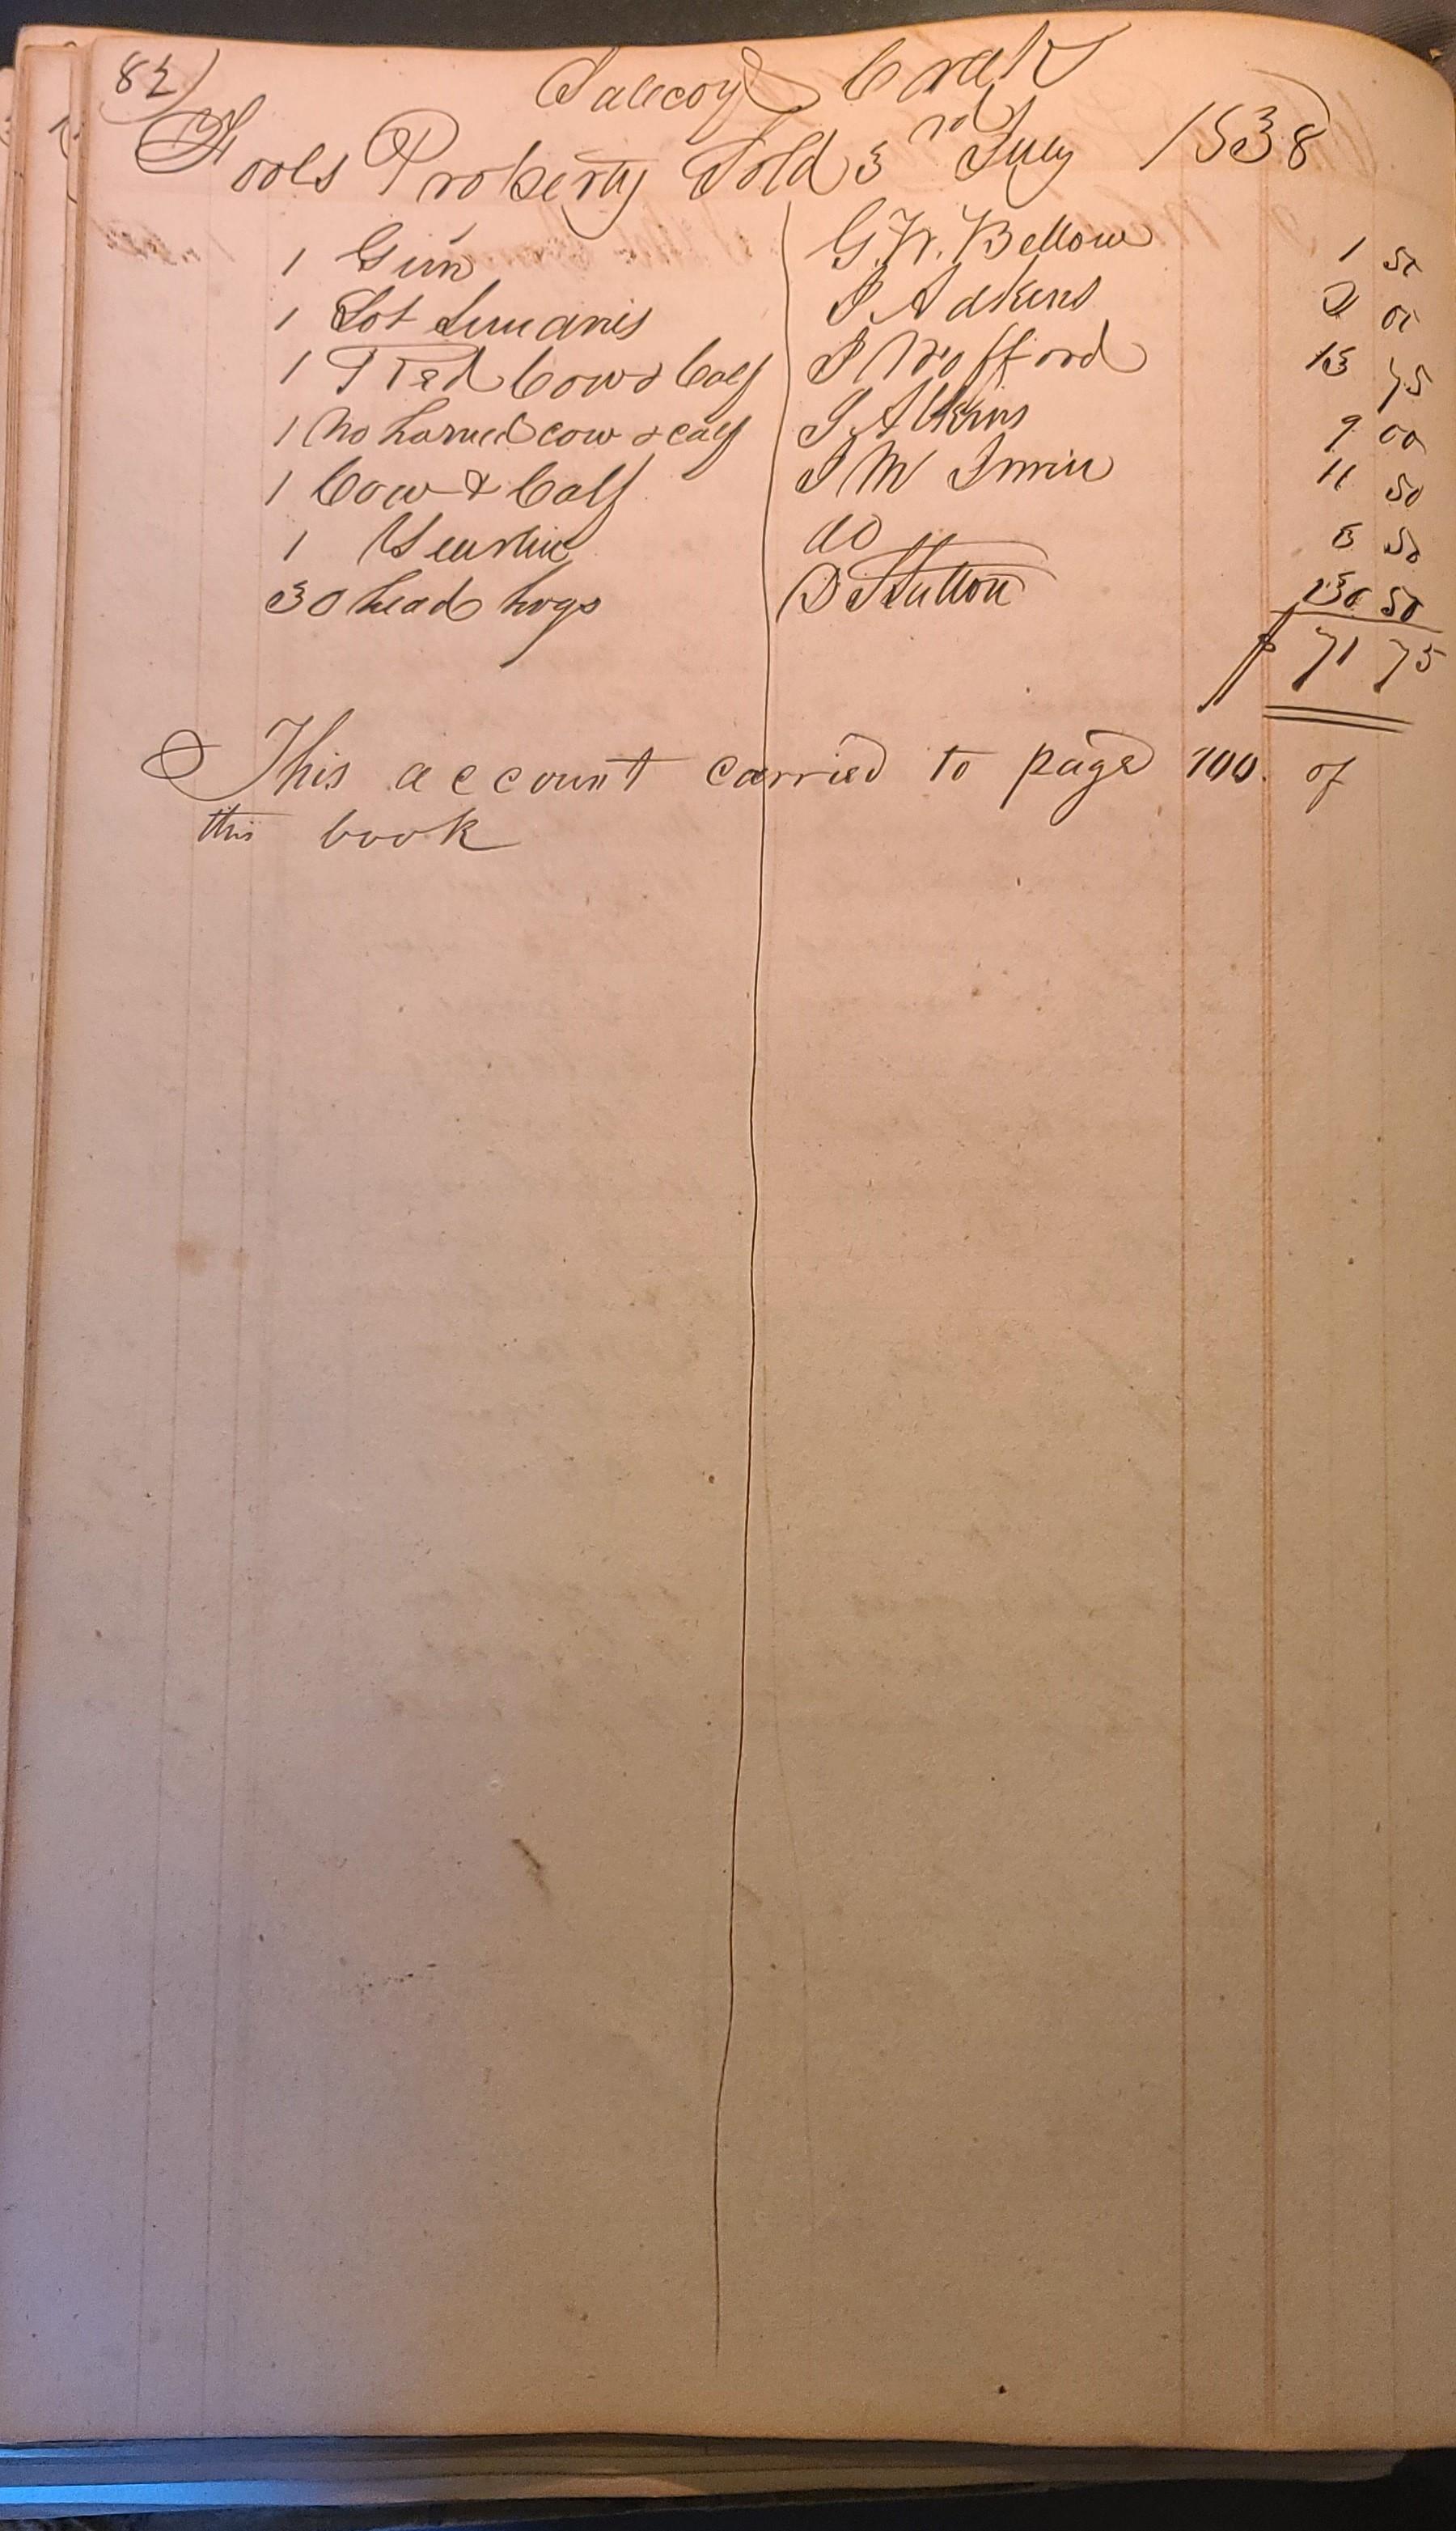 82)
Salecoy Creek
Fools Property Sold 3rd July 1838
1 Gun G. W. Bellow 1 50
1 Lot S Adkins 2 00
1 Red Cow & Calf S Wofford 13 75
1 No horned cow & calf S Adkins 9 00
1 Cow & Calf S M Irwin 11 50
1 Yearlin do 3 50
30 head hogs D Hutton 30 50
$ 71 75
This account carried to page 100. of
this book